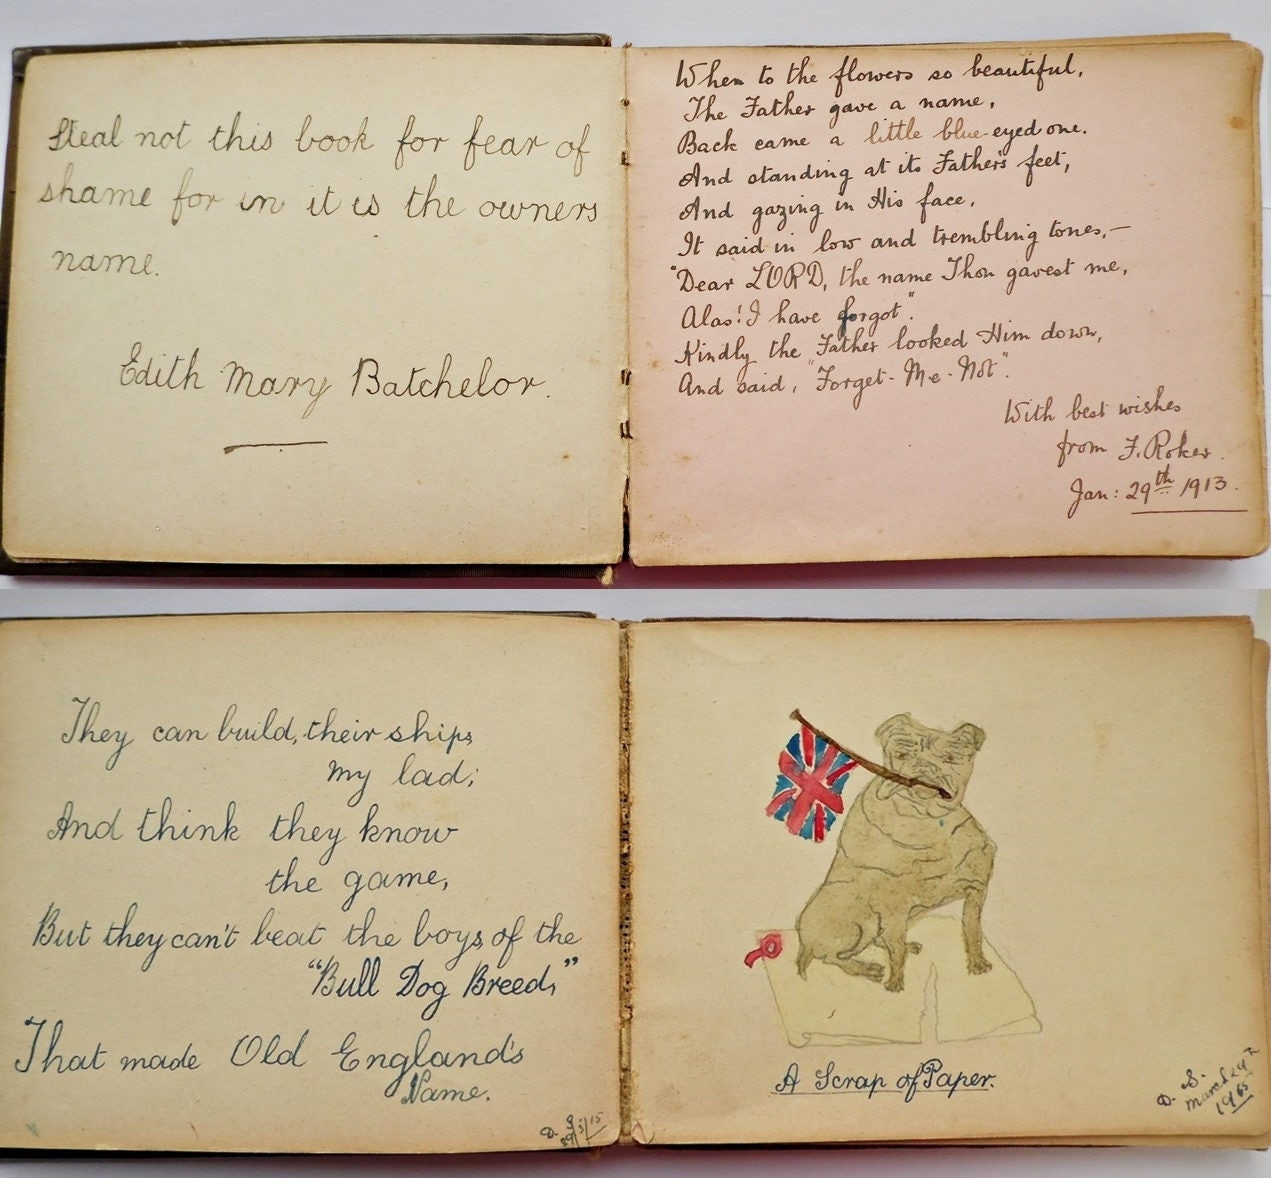 Steal not this book for fear of
shame for in it is the owners
name.
Edith Mary Batchelor.
When to the flowers so beautiful,
The Father gave a name,
Back came a little blue-eyed one.
And standing at its Father's feet,
And gazing in His face,
It said in low and trembling tones,—
"Dear LORD, the name Thou gavest me,
Alas! I have forgot".
Kindly the Father looked Him down,
And said, "Forget-Me-Not".
With best wishes
from F. Roker.
Jan: 29th 1913.
They can build, their ships,
My lad;
And think they know
the game,
But they can't beat the boys, of the
"Bull Dog Breed,"
That made Old England's
Name.
D. S.
29/3/15
A Scrap of Paper.
D. S.
March 29th